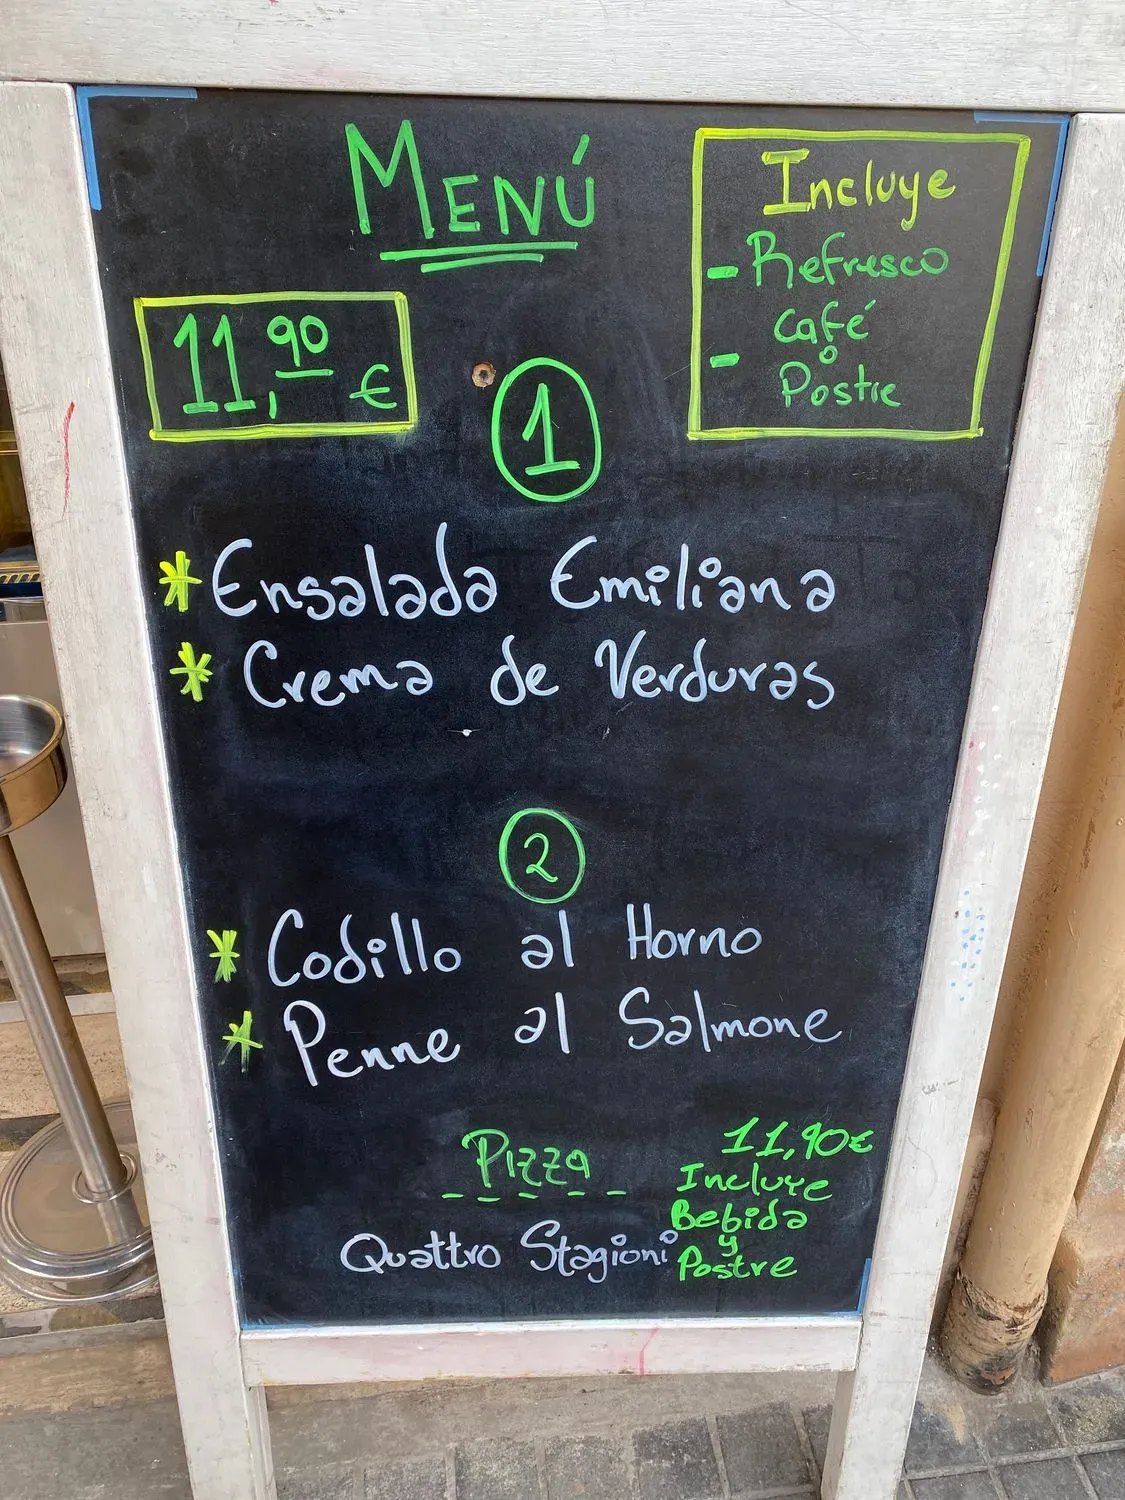 Menú
Incluye
- Refresco
café
- o
Postre
11,90 €
1
* Ensalada Emiliana
* Crema de Verduras
2
* Codillo al Horno
* Penne al Salmone
Pizza
Quattro Stagioni
11,90€
Incluye
Bebida
y
Postre